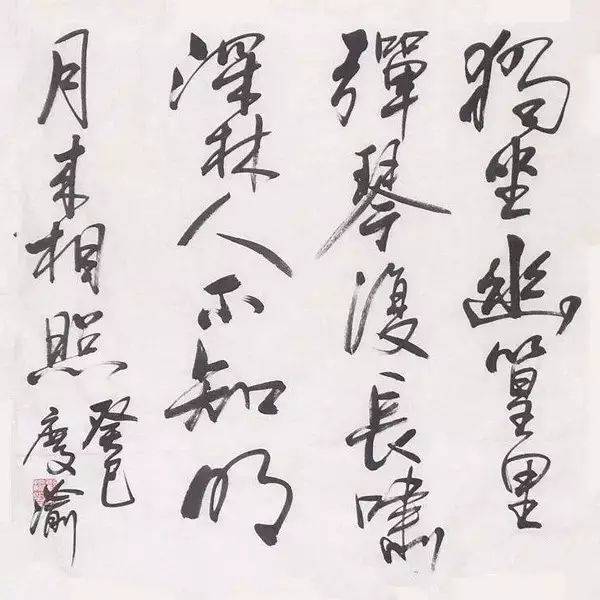 獨坐幽篁里
彈琴復長嘯
深林人不知明
月来相照
癸巳
慶瀹